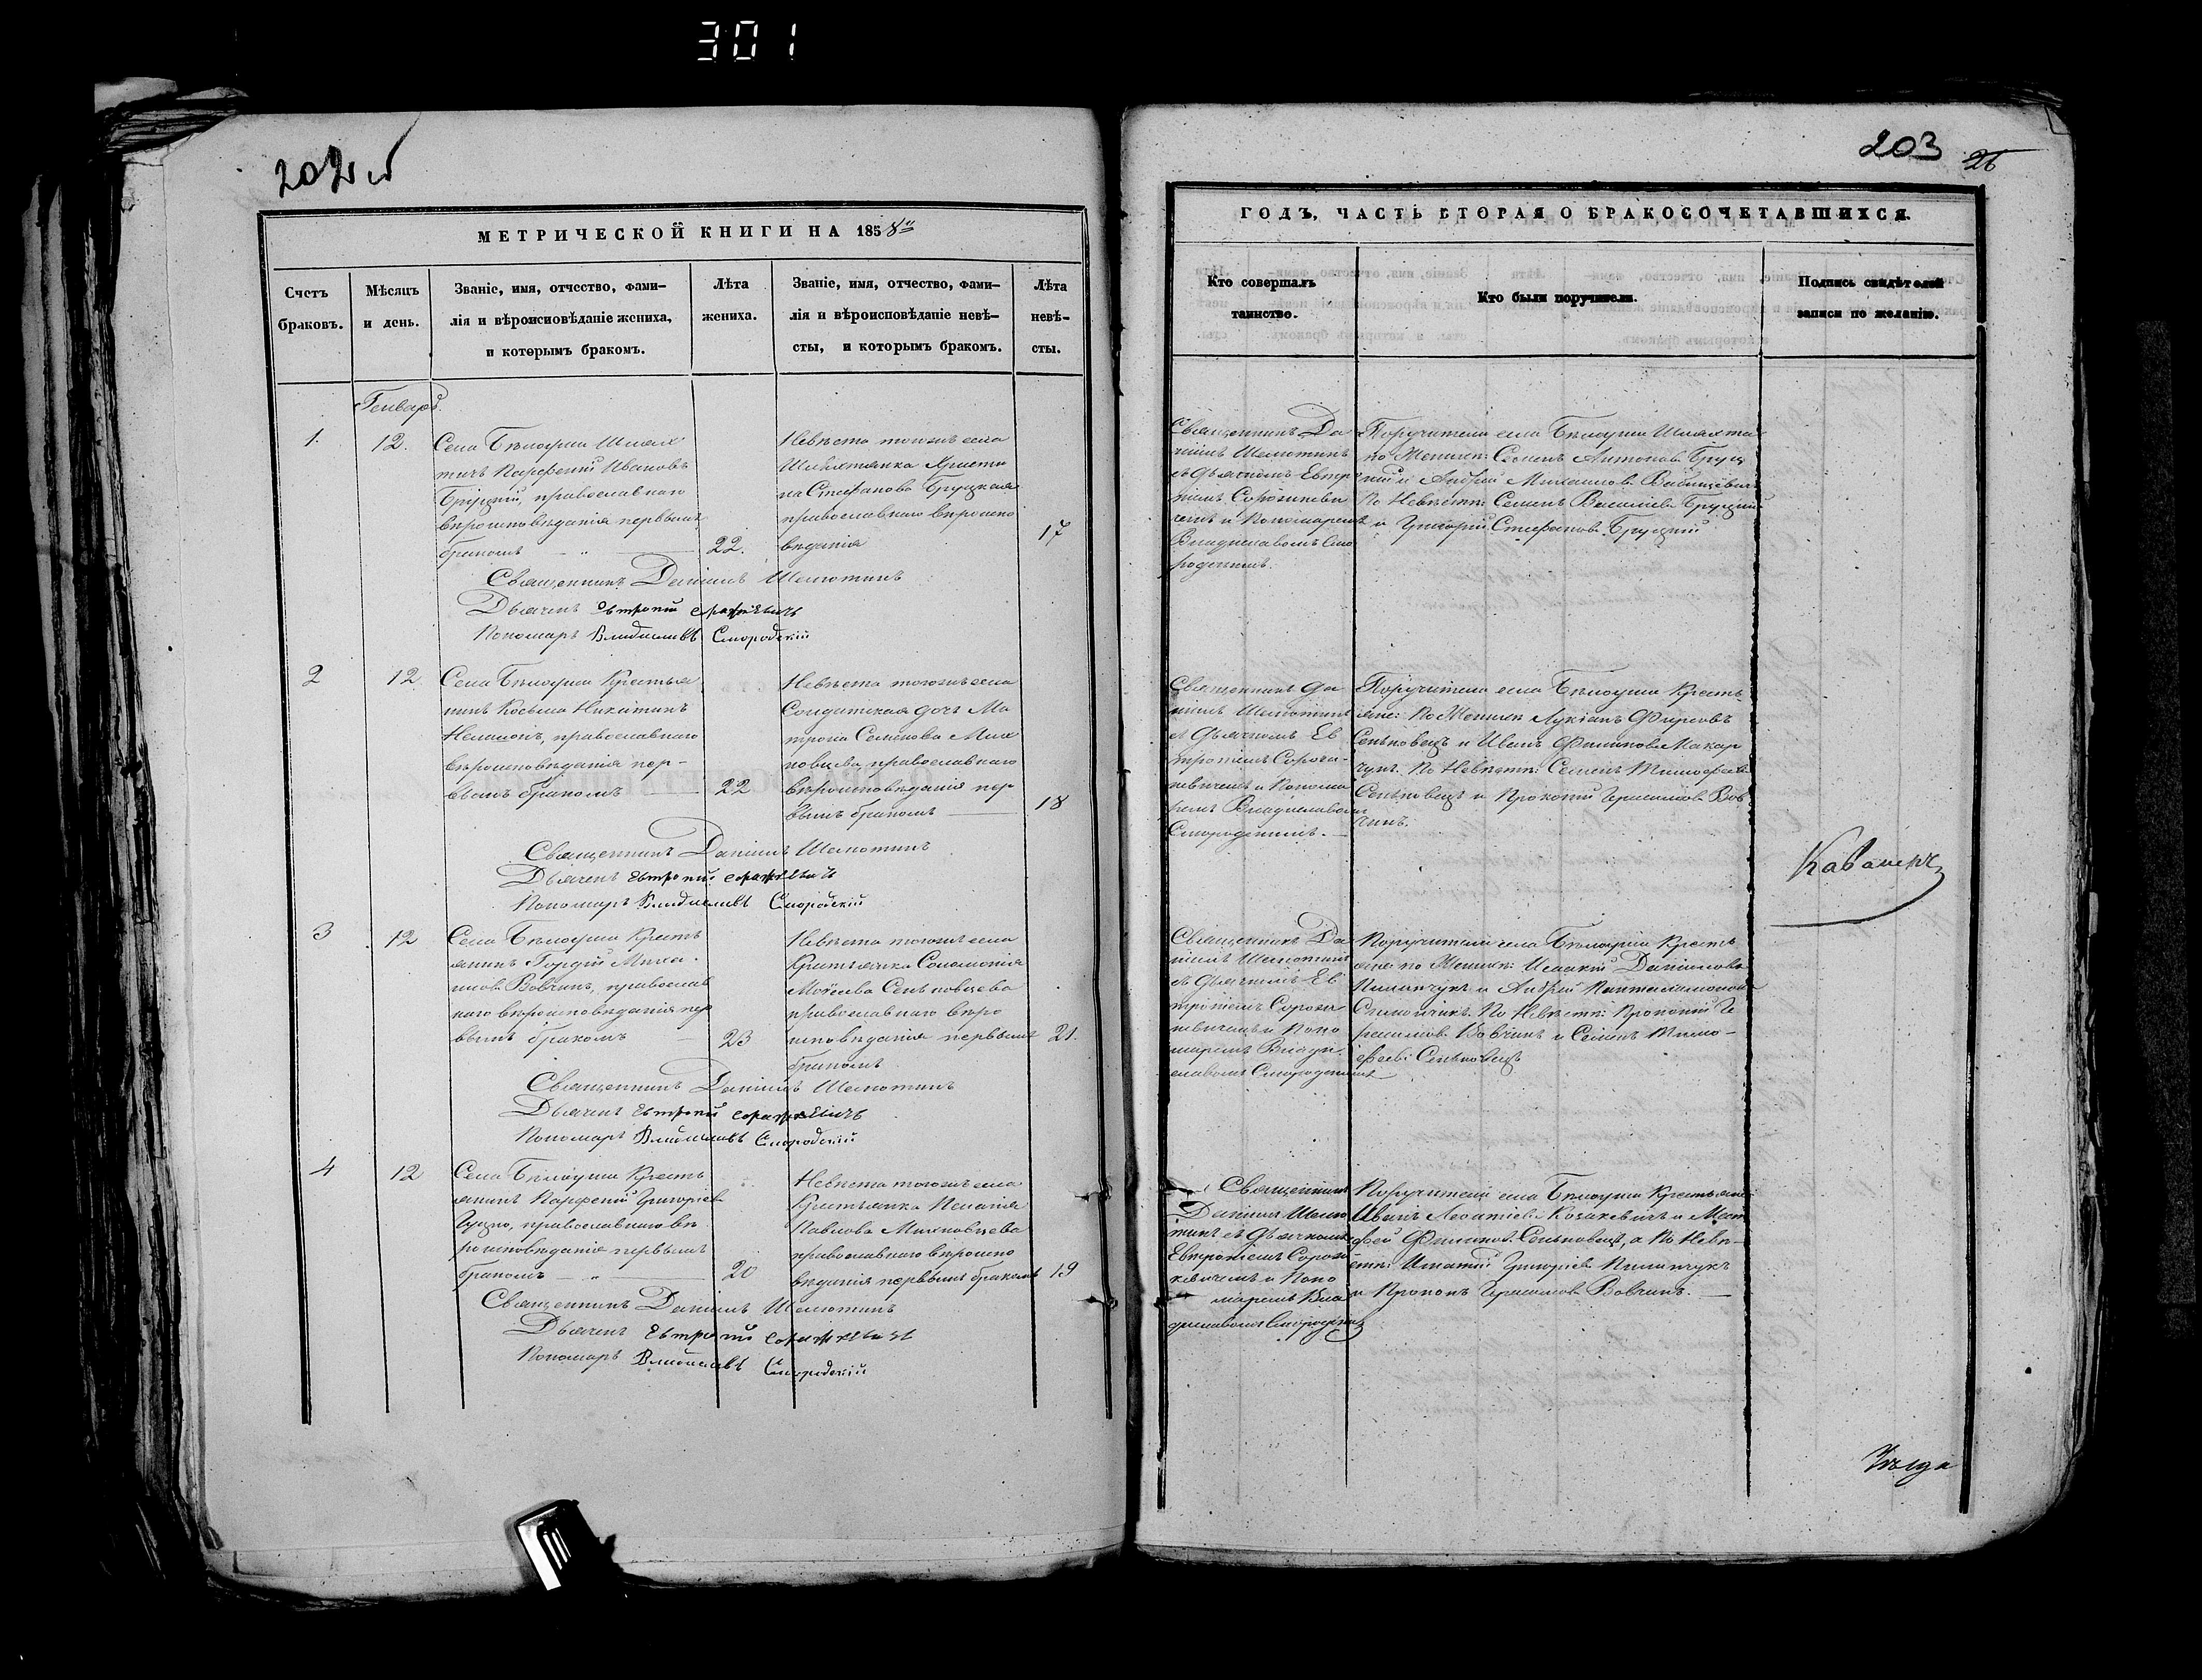 301
202 об
МЕТРИЧЕСКОЙ КНИГИ НА 1858й
Счетъ
браковъ.
Мѣсяцъ
и день.
Званіе, имя, отчество, фами-
лія и вѣроисповѣданіе жениха,
и которымъ бракомъ.
Лѣта
жениха.
Званіе, имя, отчество, фами-
лія и вѣроисповѣданіе невѣ-
сты, и которымъ бракомъ.
Лѣта
невѣ-
сты.
Генварь.
1.
12.
Села Бѣлоуши Шлях
тичъ Парфеній Ивановъ
Бруцкій, православнаго
вѣроисповѣданія первымъ
бракомъ
22.
Невѣста тогожъ села
Шляхтянка Христи
на Стефанова Бруцкая
православнаго вѣроиспо
вѣданія
17
Священникъ Даніилъ Шелютинъ
Дьячекъ Евтропій
Пономарь Владиславъ Смородскій
2
12
Села Бѣлоуши Крестья
нинъ Косьма Никитинъ
православнаго
вѣроисповѣданія пер-
вымъ бракомъ
22
Невѣста тогожъ села
Солдатская дочь Ма
трона Семенова Мих
новцева православнаго
вѣроисповѣданія пер
вымъ бракомъ
18
Священникъ Даніилъ Шелютинъ
Дьячекъ Евтропій
Пономарь Владиславъ Смородскій
3
12
Села Бѣлоуши Кресть
янинъ Гордій Миха
иловъ Вовчикъ, православ
наго вѣроисповѣданія пер
вымъ бракомъ
23
Невѣста тогожъ села
Крестьянка Соломонія
Моѵсеева Сеньковцева
православнаго вѣро
исповѣданія первымъ
бракомъ
21.
Священникъ Даніилъ Шелютинъ
Дьячекъ Евтропій
Пономарь Владиславъ Смородскій
4
12
Села Бѣлоуши Кресть
янинъ Парфеній Григорьев
православнаго вѣ
роисповѣданія первымъ
бракомъ
20
Невѣста тогожъ села
Крестьянка Пелагія
Павлова Михновцева
православнаго вѣроиспо
вѣданія первымъ бракомъ
19
Священникъ Даніилъ Шелютинъ
Дьячекъ Евтропій
Пономарь Владиславъ Смородскій
203
26
ГОДЪ, ЧАСТЬ ВТОРАЯ О БРАКОСОЧЕТАВШИХСЯ.
Кто совершалъ
таинство.
Кто были поручители.
Подпись свидѣтелей
записи по желанію.
Священникъ Да
ніилъ Шелютинъ
съ дьячкомъ Евтро
піемъ
чемъ и Пономаремъ
Владиславомъ Смо
родскимъ.
Поручители села Бѣлоуши Шляхта
по Женихѣ: Семенъ Антоновъ Бруц
кій и Андрей Михаиловъ
По Невѣстѣ: Семенъ Василіевъ Бруцкій
и Григорій Стефановъ Бруцкій
Священникъ Да
ніилъ Шелютинъ
съ Дьячкомъ Ев
тропіемъ
и Понома
ремъ Владиславомъ
Смородскимъ.
Поручители села Бѣлоуши Кресть
яне: По Женихѣ Лукіанъ Фирсовъ
Сеньковецъ и Иванъ Филиповъ Макар
чукъ. По Невѣстѣ: Семенъ Тимофеевъ
Сеньковецъ и Прокопій Герасимовъ Вов
чикъ.
Священникъ Да
ніилъ Шелютинъ
съ Дьячкомъ Ев
тропіемъ
и Поно
маремъ Влади
славомъ Смородскимъ
Поручители села Бѣлоуши Кресть
яне по Женихѣ: Исаакій Даніиловъ
Пилипчукъ и Андрей Пантелимоновъ
По Невѣстѣ: Прокопій Ге
расимовъ Вовчикъ и Семенъ Тимо-
феевъ Сеньковецъ
Священникъ
Даніилъ Шелю
тинъ съ Дьячкомъ
Евтропіемъ
и Поно
маремъ Вла
диславомъ Смородскимъ
Поручители села Бѣлоуши Крестьяне
Иванъ Леонтіевъ Козакевичъ и Мат
фей Филиповъ Сеньковецъ, а по Невѣ-
стѣ: Игнатій Григоріевъ Пилипчукъ
и Прокопъ Герасимовъ Вовчикъ.